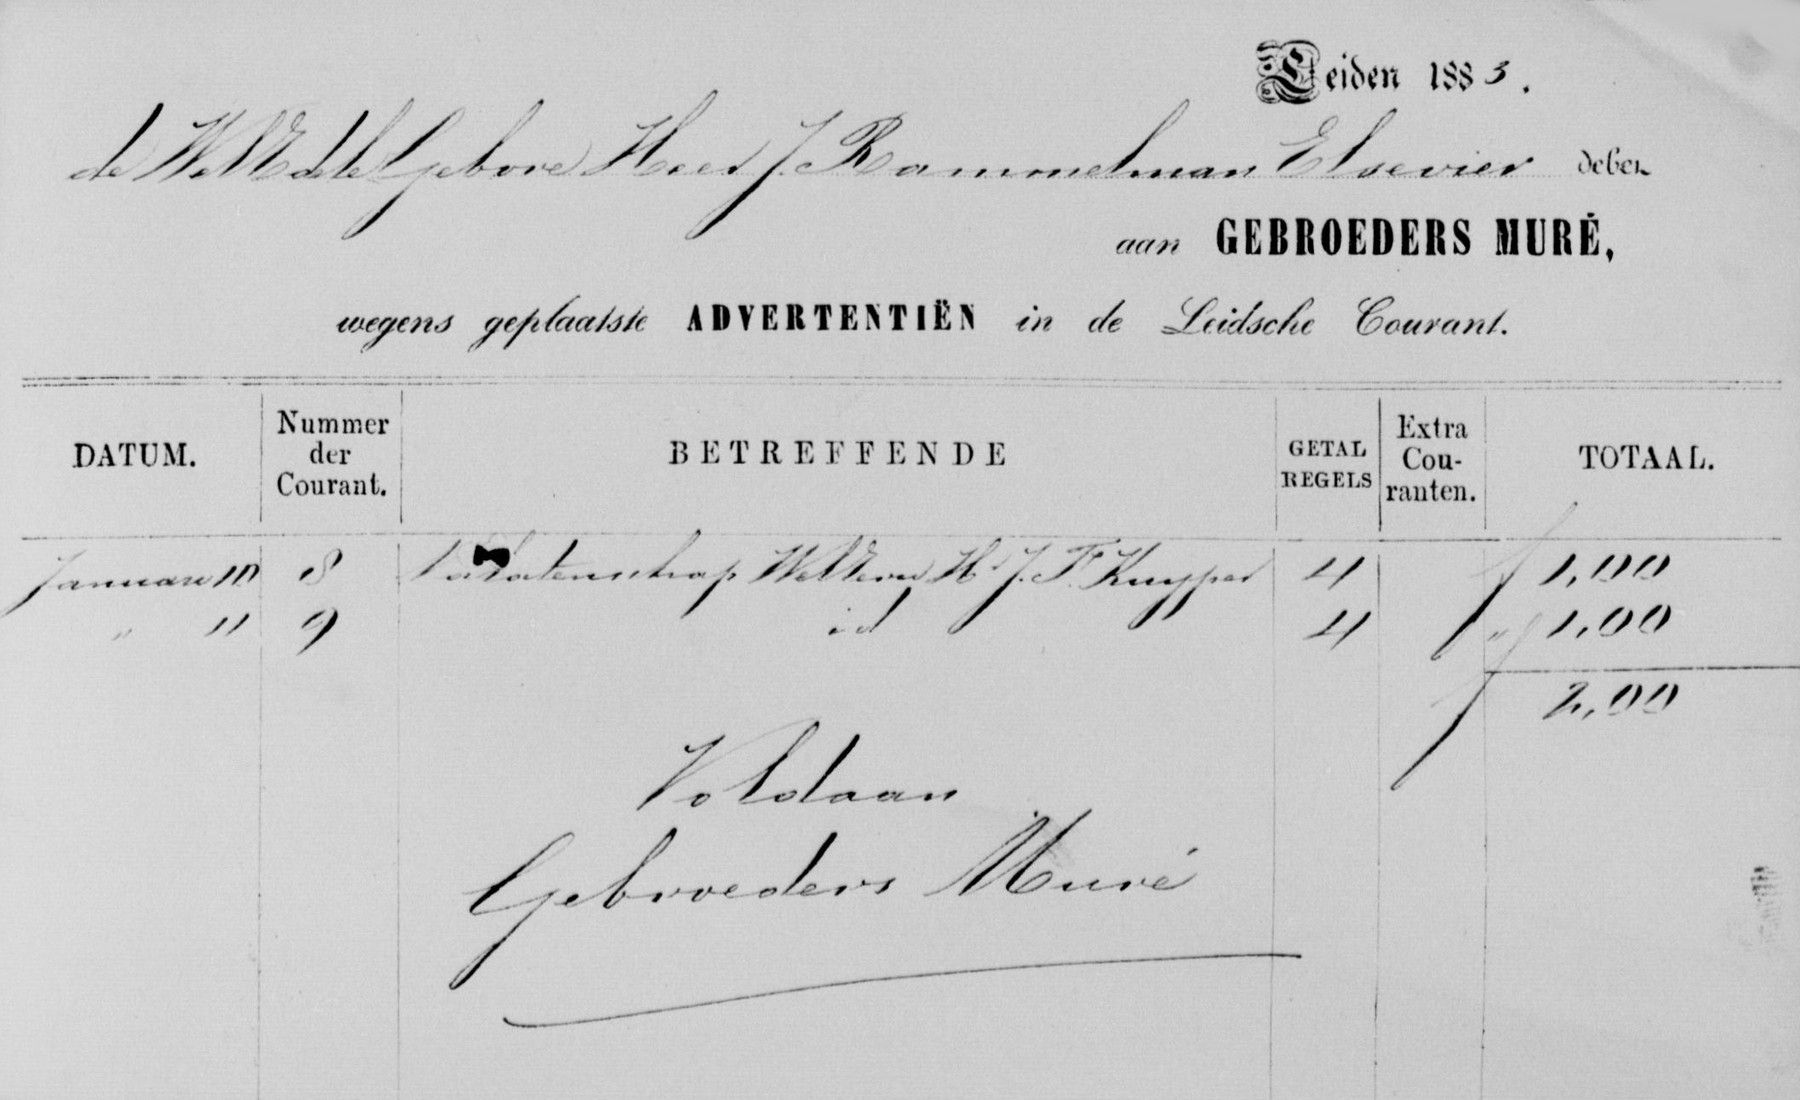 Leiden 1883.
de WelEdele Gebore Heer J. Rammelman Elsevier debet
aan GEBROEDERS MURÉ,
wegens geplaatste ADVERTENTIËN in de Leidsche Courant.
DATUM. Nummer der Courant. BETREFFENDE GETAL REGELS Extra Cou-ranten. TOTAAL.
Januari 10 8 Nalatenschap WelEerw Hr J. F. Kuyper 4 f 1,00
" 11 9 id 4 " 1,00
f 2,00
Voldaan
Gebroeders Muré